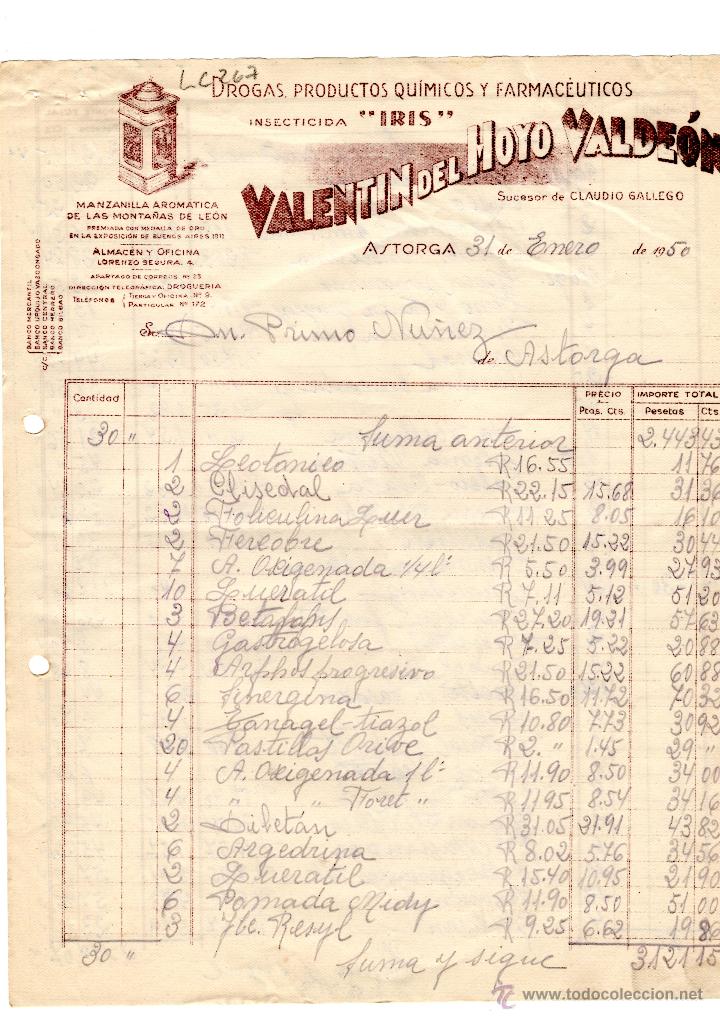 LC267
DROGAS, PRODUCTOS QUÍMICOS Y FARMACÉUTICOS
INSECTICIDA "IRIS"
VALENTIN DEL HOYO VALDEÓN
Sucesor de CLAUDIO GALLEGO
MANZANILLA AROMÁTICA
DE LAS MONTAÑAS DE LEÓN
PREMIADA CON MEDALLA DE ORO
EN LA EXPOSICIÓN DE BUENOS AIRES 1911
ALMACÉN Y OFICINA
LORENZO SEGURA, 4
APARTADO DE CORREOS, Nº 25
DIRECCIÓN TELEGRÁFICA: DROGUERIA
TELÉFONOS TIENDA Y OFICINA, Nº 9.
PARTICULAR, Nº 172
C/C
BANCO MERCANTIL
BANCO URQUIJO VASCONGADO
BANCO CENTRAL
BANCO HERRERO
BANCO BILBAO
ASTORGA 31 de Enero de 1950
Sr. Dn. Primo Núñez
de Astorga
Cantidad PRECIO IMPORTE TOTAL
Ptas. Cts. Pesetas Cts
30 " Suma anterior 2.443 43
1 R 16.55 11 76
2 R 22.15 15.68 31 36
2 Foliculina R 11 25 8.05 16 10
2 Fercobre R 21.50 15.22 30 44
7 A. Oxigenada 1/4 l. R 5.50 3.99 27 93
10 Lueratil R 7.11 5.12 51 20
3 R 27.20 19.21 57 63
4 Gastrogelosa R 7.25 5.22 20 88
4 Arphos progresivo R 21.50 15.22 60 88
6 Sinergina R 16.50 11.72 70 32
4 Tanagel-tiazol R 10.80 7.73 30 92
20 Pastillas Orive R 2. " 1.45 29 "
4 A. Oxigenada 1 l. R 11.90 8.50 34 00
4 " " Foret " R 11 95 8.54 34 16
2 R 31.05 21.91 43 82
6 Argedrina R 8.02 5.76 34 56
2 Lueratil R 15.40 10.95 21 90
6 Pomada Midy R 11.90 8.50 51 00
3 Jbe. Resyl R 9.25 6.62 19 86
30 " Suma y sigue 3.121 15
© www.todocoleccion.net